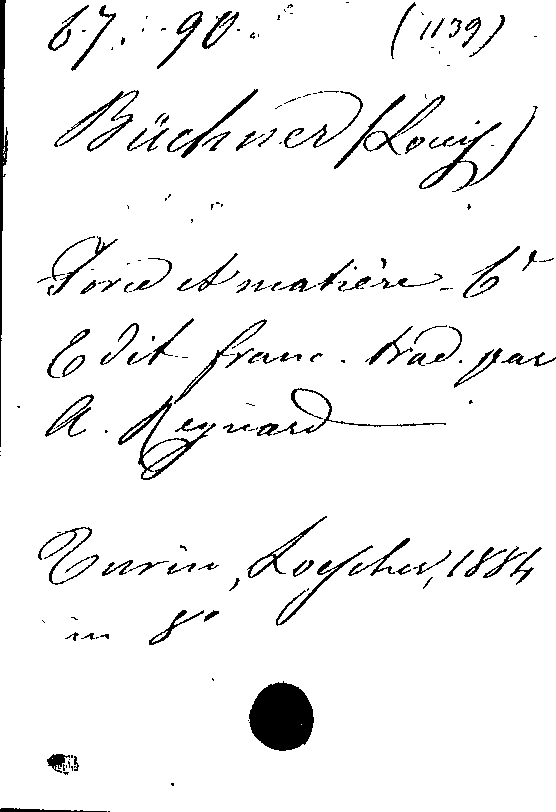 67. 90. (1139)
Büchner (Louis)
Force et matière - 6e
Edit franc. trad. par
A. Regnard
Turin, Loescher, 1884
in 8°